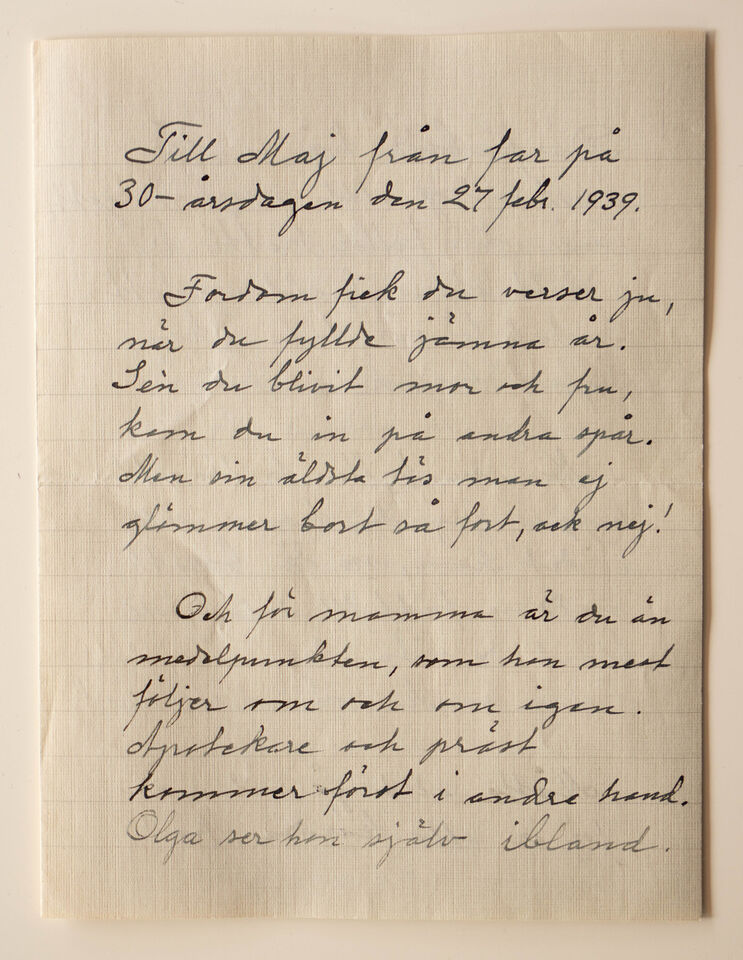 Till Maj från far på
30-årsdagen den 27 febr. 1939.
Fordom fick du verser ju,
när du fyllde jämna år.
Se'n du blivit mor och fru,
kom du in på andra spår.
Men sin äldsta tös man ej
glömmer bort så fort, ack nej!
Och för mamma är du än
medelpunkten, som hon mest
följer om och om igen.
Apotekare och präst
kommer först i andra hand.
Olga ser hon själv ibland.